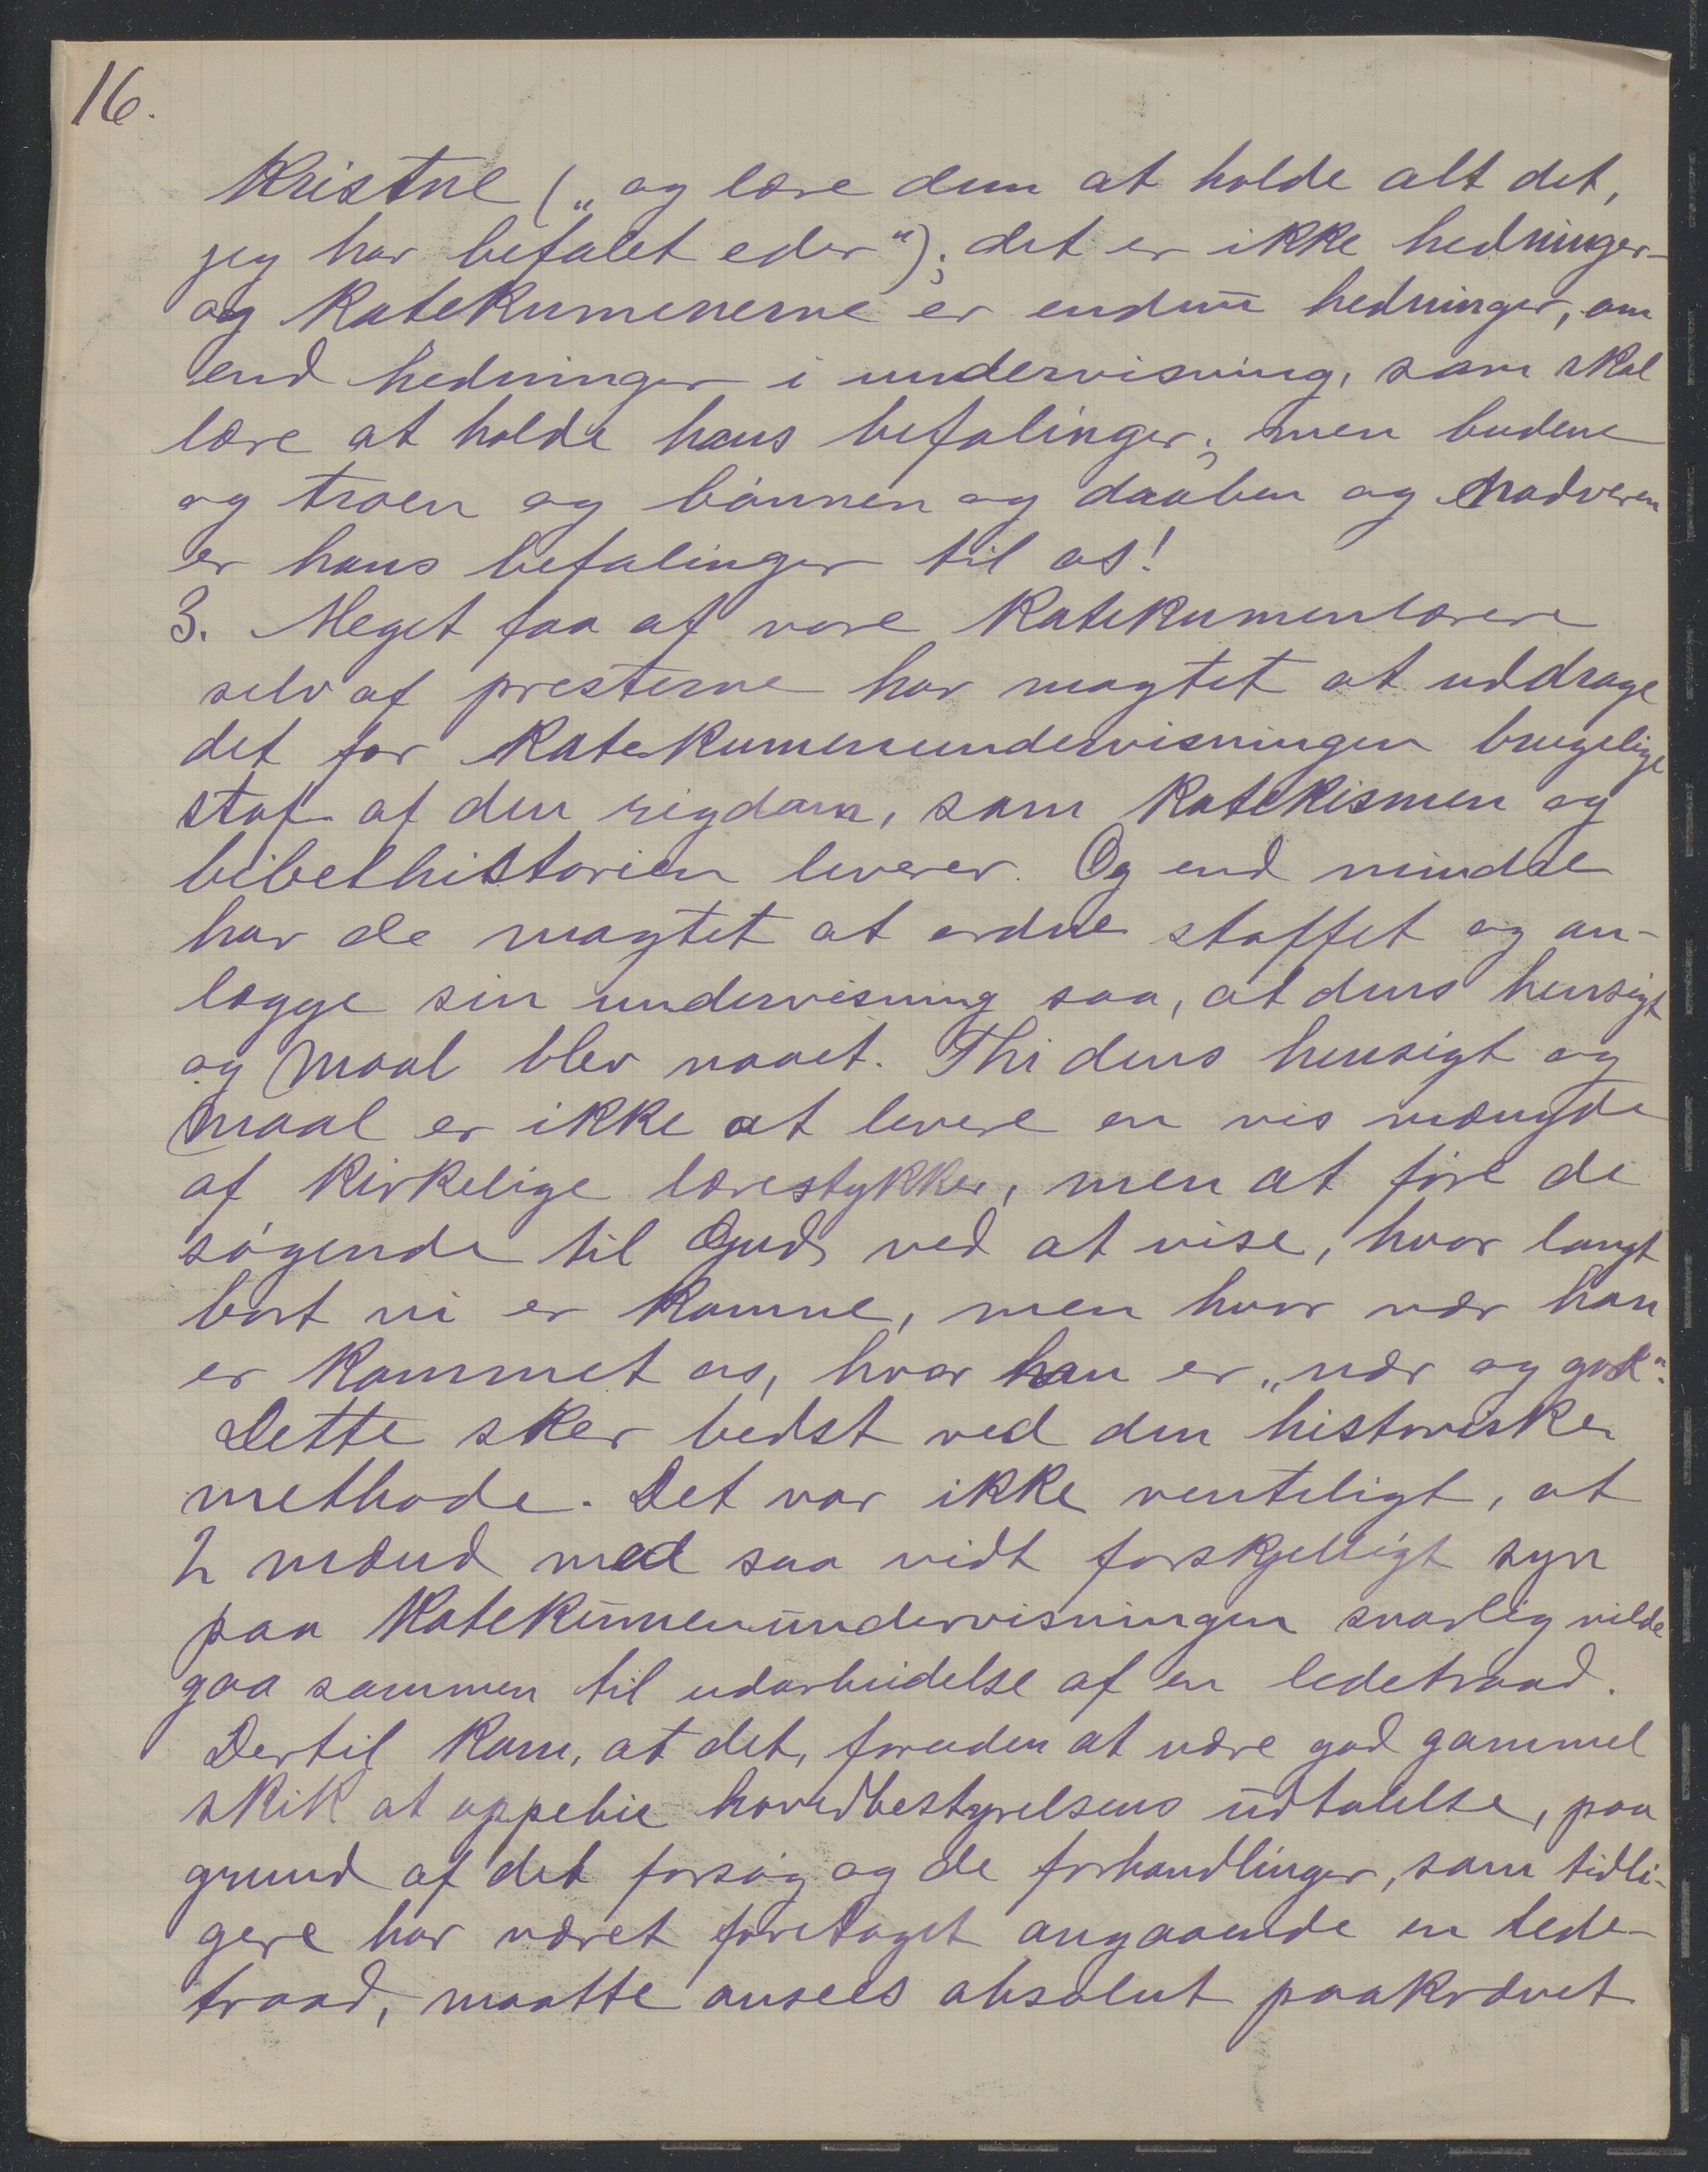 16.
Kristne („og lære dem at holde alt det,
jeg har befalet eder“); det er ikke hedninger-
og katekumenerne er endnu hedninger, om
end hedninger i undervisning, som skal
lære at holde hans befalinger; men budene
og troen og bønnen og daaben og nadveren
er hans befalinger til os!
3. Meget faa af vore katekumenlærere
selv af presterne har magtet at uddrage
det for katekumenundervisningen brugelige
stof af den rigdom, som katekismen og
bibelhistorien leverer. Og end mindre
har de magtet at ordne stoffet og an-
lægge sin undervisning saa, at dens hensigt
og maal blev naaet. Thi dens hensigt og
maal er ikke at levere en vis mængde
af kirkelige lærestykker, men at føre de
søgende til Gud, ved at vise, hvor langt
bort vi er komne, men hvor nær han
er kommet os, hvor han er „nær og god“.
Dette sker bedst ved den historiske
methode. Det var ikke venteligt, at
2 mænd med saa vidt forskjelligt syn
paa katekumenundervisningen snarlig vilde
gaa sammen til udarbeidelse af en ledetraad.
Dertil kom, at det, foruden at være god gammel
skik at oppebie hovedbestyrelsens udtalelse, paa
grund af det forsøg og de forhandlinger, som tidli-
gere har været foretaget angaaende en lede-
traad, maatte ansees absolut paakrævet